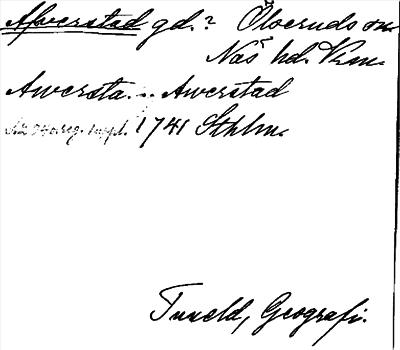 Afverstad gd.? Ölseruds sn.
Näs hd. Vrm.
Awersta... Awerstad
1741 Sthlm.
Tuneld, Geografi.